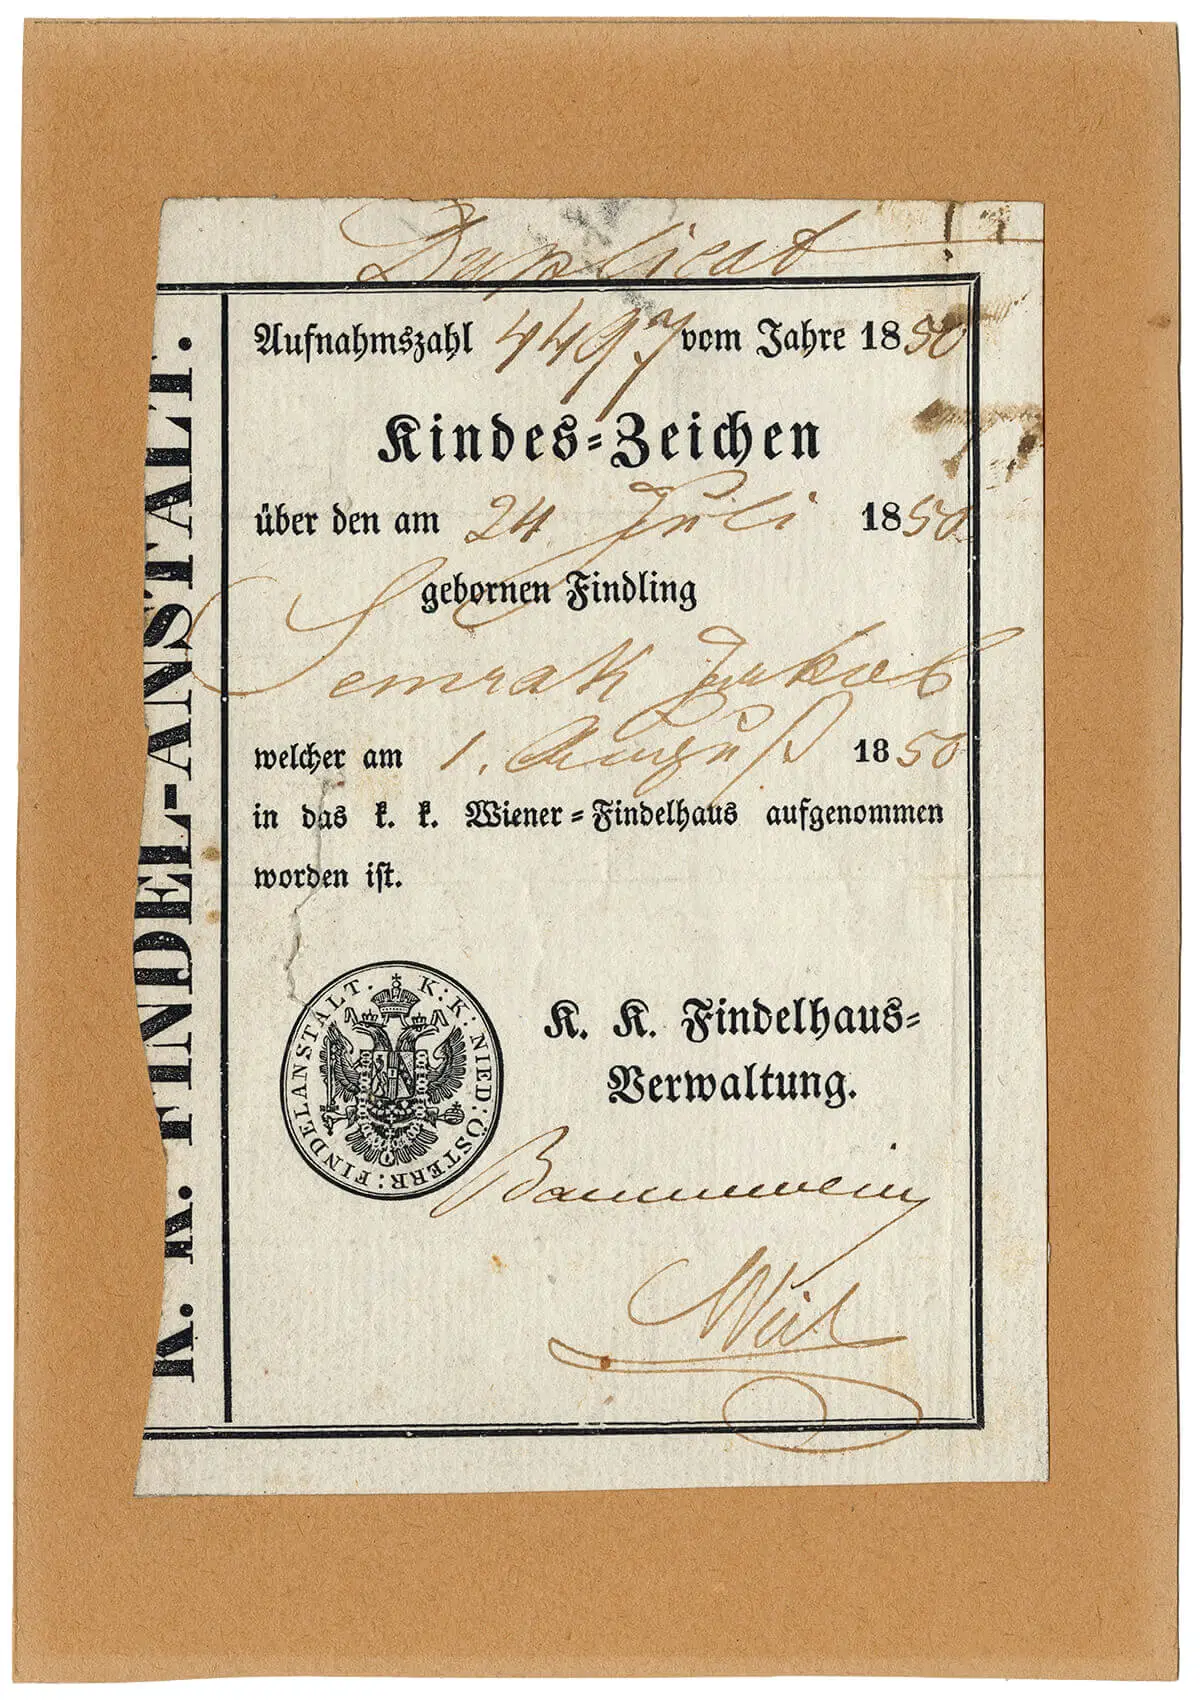 Duplicat
Aufnahmszahl 4497 vom Jahre 1850
Kindes=Zeichen
über den am 24 Juli 1850
gebornen Findling
Semrak Jakob
welcher am 1. August 1850
in das k. k. Wiener=Findelhaus aufgenommen
worden ist.
K. K. Findelhaus=
Verwaltung.
K: K: NIED: ÖSTERR: FINDELANSTALT.
K. K. FINDEL-ANSTALT.